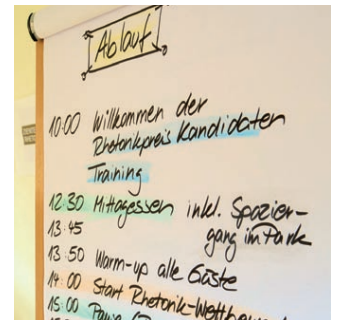 Ablauf
10:00 Willkommen der
Rhetorikpreis Kandidaten
Training
12:30 Mittagessen inkl. Spazier-
13:45 gang im Park
13:50 Warm-up alle Gäste
14:00 Start Rhetorik-Wettbewerb
15:00